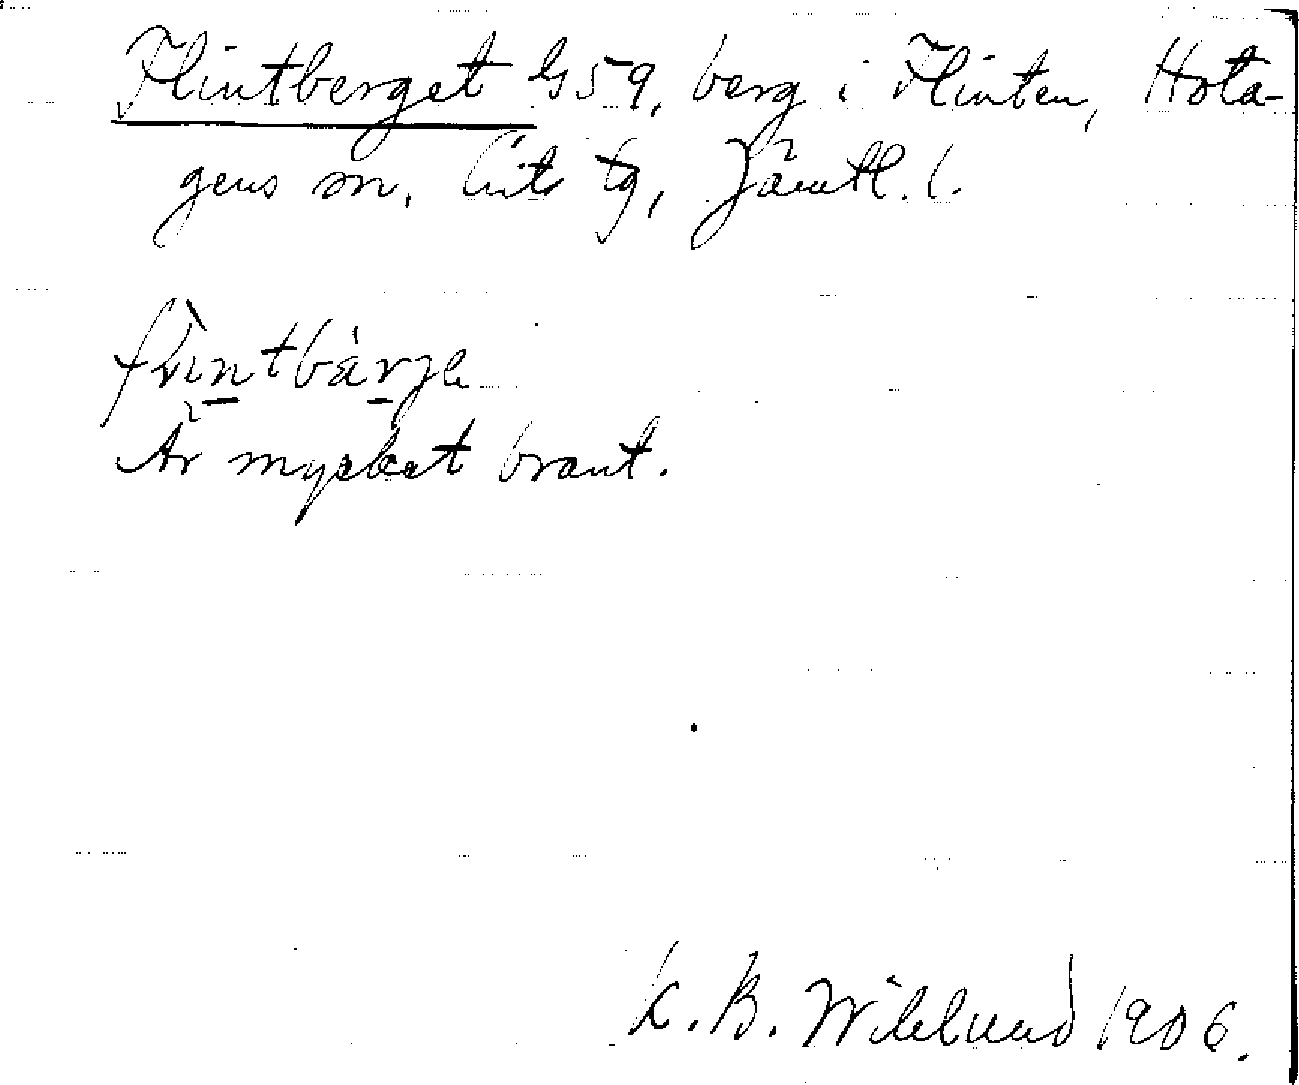 Flintberget G59, berg i Flinten, Hota-
gens sn, Lits tg, Jämtl. l.
Är mycket brant.
K. B. Wiklund 1906.